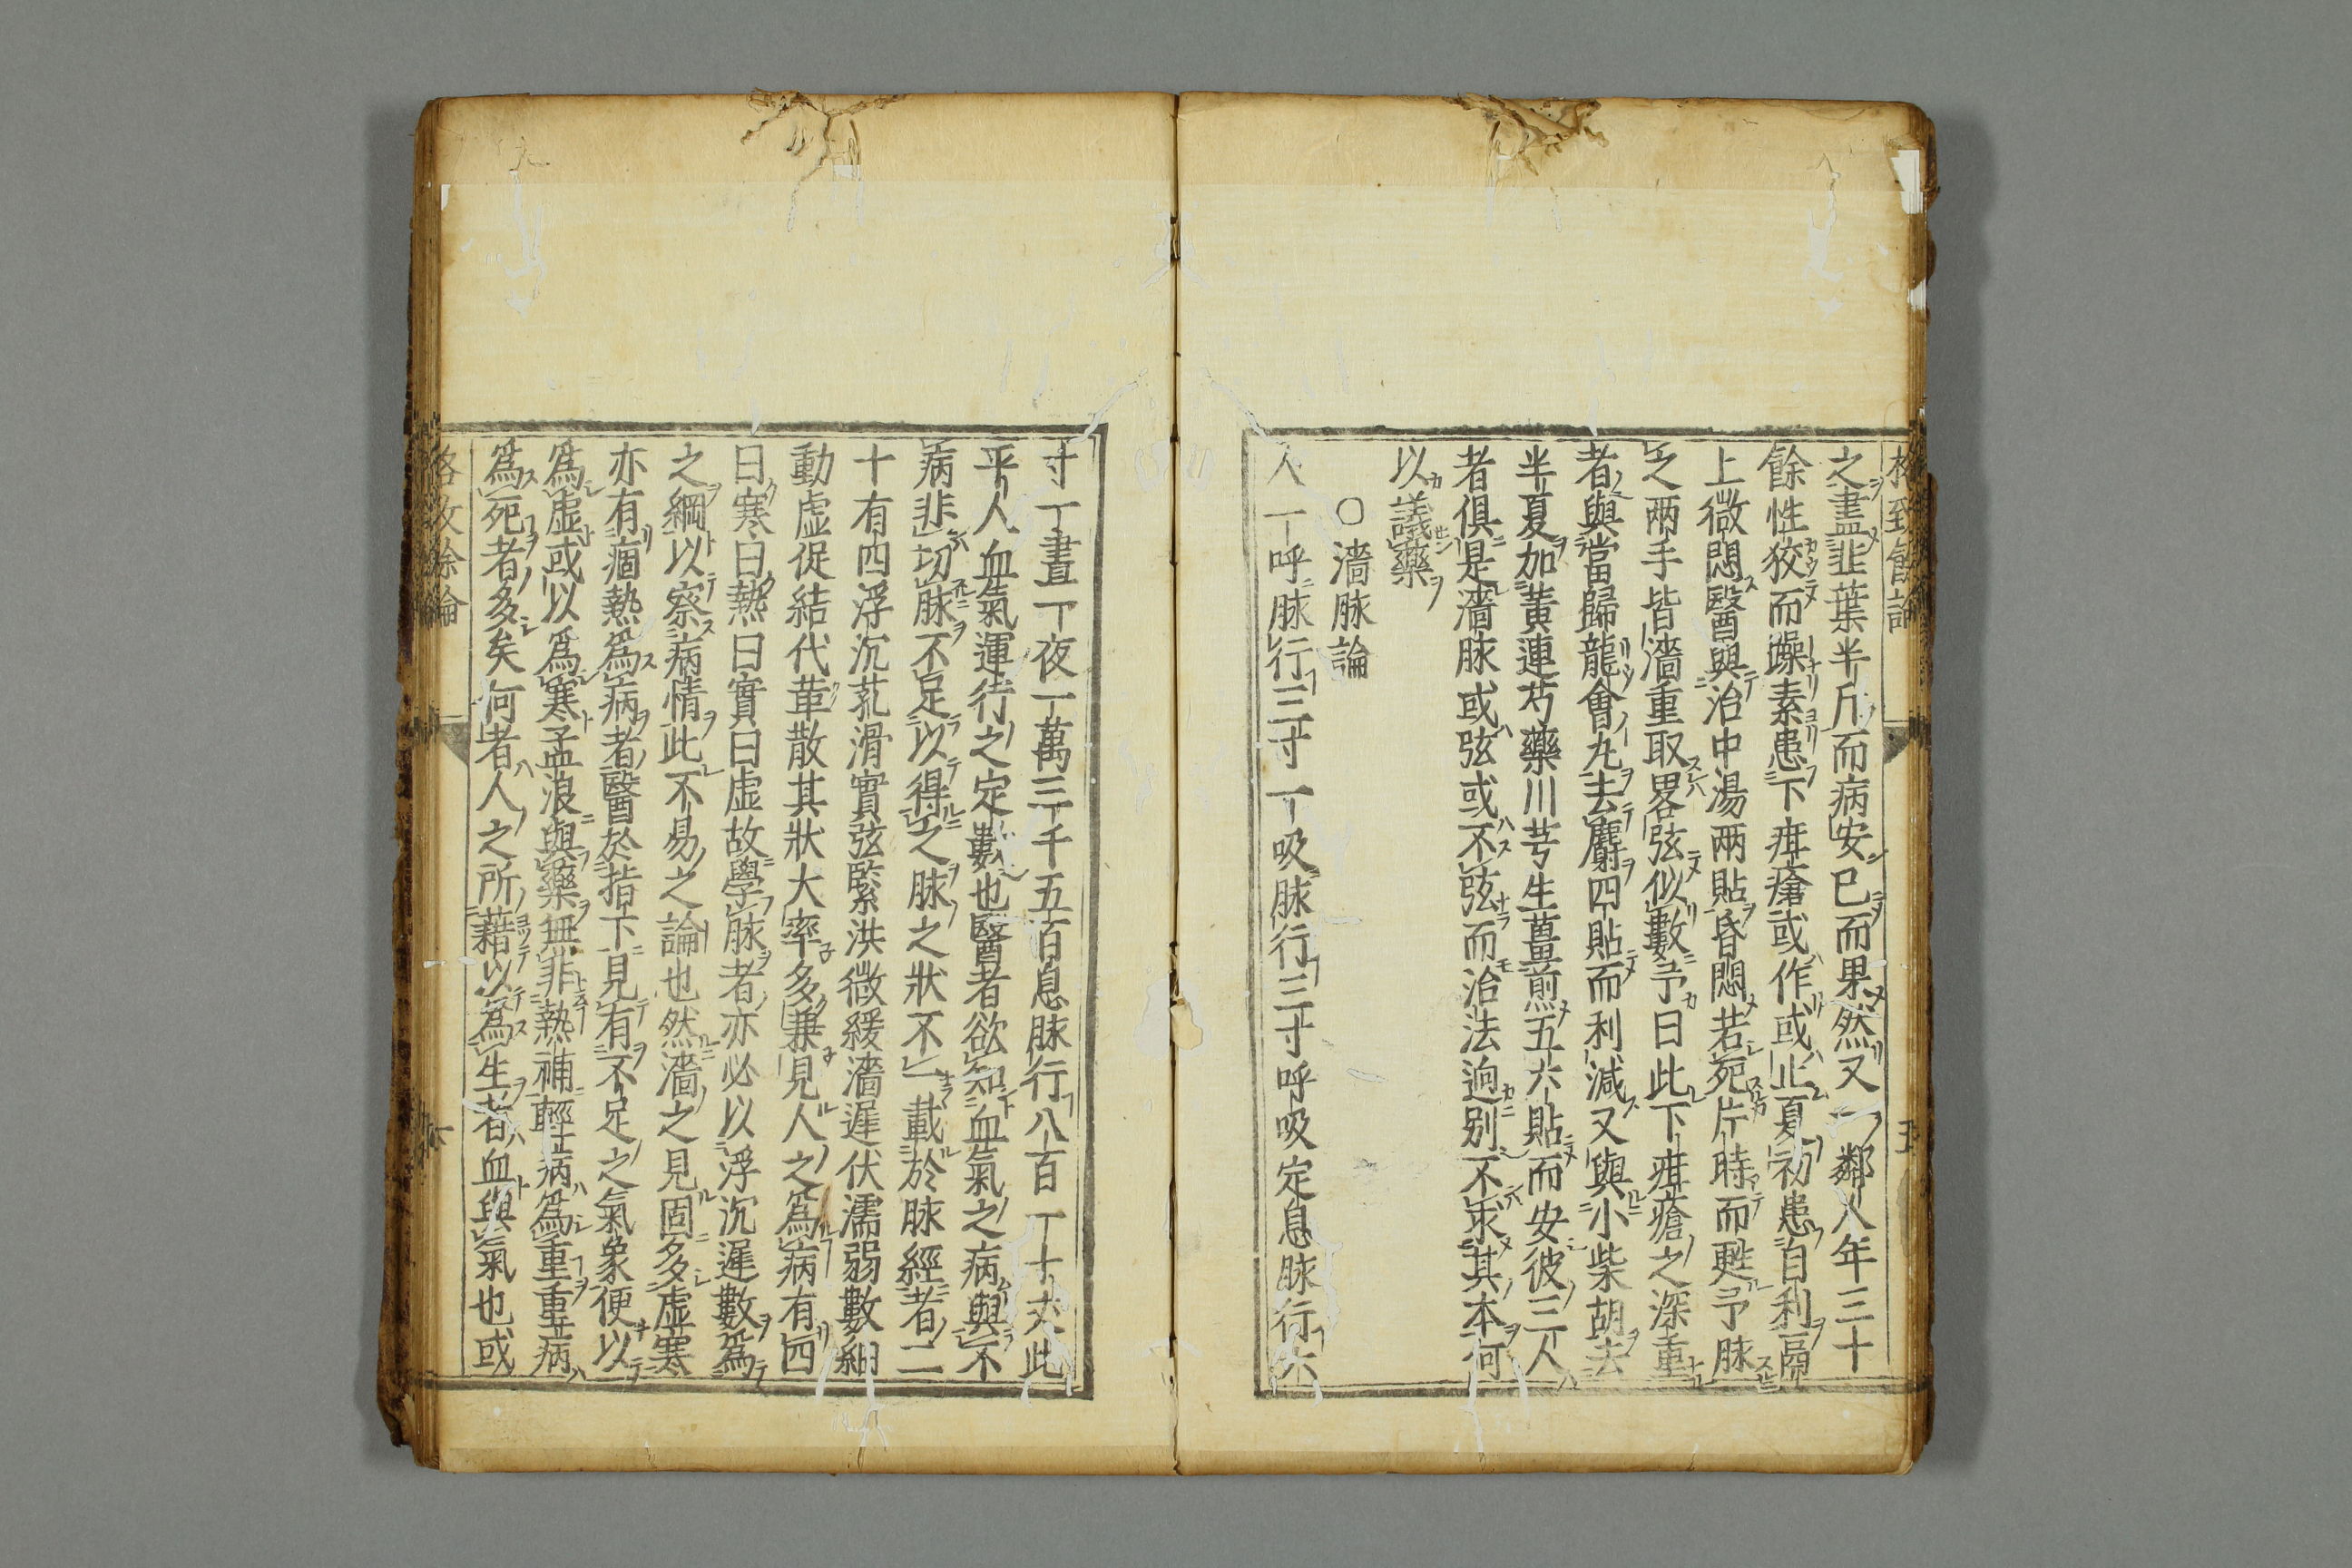 格致餘論
五
之盡韭葉半斤而病安已而果然又一鄰人年三十
餘性狡而躁素患下疳瘡或作或止夏初患自利膈
上微悶醫與治中湯兩貼昏悶若死片時而甦予脉
之兩手皆濇重取畧弦似數予曰此下疳瘡之深重
者與當歸龍會丸去麝四貼而利減又與小柴胡去
半夏加黃連芍藥川芎生薑煎五六貼而安彼三人
者俱是濇脉或弦或不弦而治法逈别不求其本何
以議藥
○濇脉論
人一呼脉行三寸一吸脉行三寸呼吸定息脉行六
寸一晝一夜一萬三千五百息脉行八百一十丈此
平人血氣運行之定數也醫者欲知血氣之病與不
病非切脉不足以得之脉之狀不一載於脉經者二
十有四浮沉芤滑實弦緊洪微緩濇遲伏濡弱數細
動虛促結代革散其狀大率多兼見人之爲病有四
曰寒曰熱曰實曰虛故學脉者亦必以浮沉遲數爲
之綱以察病情此不易之論也然濇之見固多虛寒
亦有痼熱爲病者醫於指下見有不足之氣象便以
爲虛或以爲寒孟浪與藥無非熱補輕病爲重重病
爲死者多矣何者人之所藉以爲生者血與氣也或
格致餘論
六